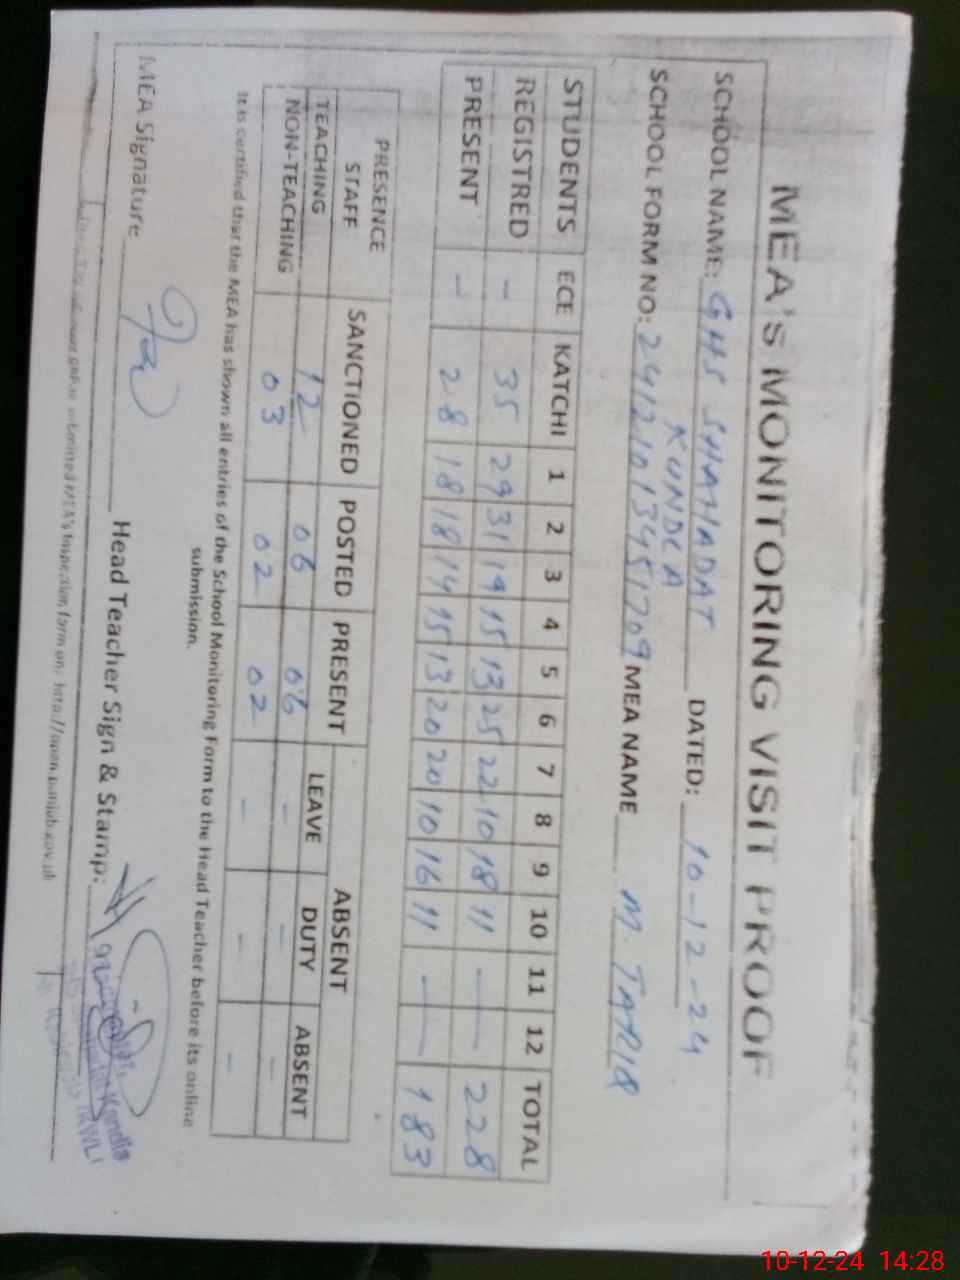 MEA's MONITORING VISIT PROOF
SCHOOL NAME: GHS SHAHADAT KUNDLA DATED: 10-12-24
SCHOOL FORM NO: 24121013451709 MEA NAME M. TARIQ
STUDENTS ECE KATCHI 1 2 3 4 5 6 7 8 9 10 11 12 TOTAL
REGISTRED - 35 29 31 19 15 13 25 22 10 18 11 - - 228
PRESENT - 28 18 18 14 15 13 20 20 10 16 11 - - 183
PRESENCE STAFF SANCTIONED POSTED PRESENT ABSENT
LEAVE DUTY ABSENT
TEACHING 12 06 06 - - -
NON-TEACHING 03 02 02 - - -
It is certified that the MEA has shown all entries of the School Monitoring Form to the Head Teacher before its online
submission.
MEA Signature Head Teacher Sign & Stamp:
submitted MEA's Inspection form on: http://open.punjab.gov.pk
10-12-24 14:28